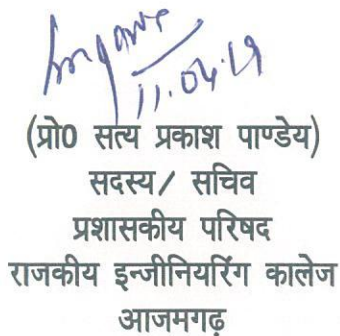 11.04.19
(प्रो0 सत्य प्रकाश पाण्डेय)
सदस्य/ सचिव
प्रशासकीय परिषद
राजकीय इन्जीनियरिंग कालेज
आजमगढ़